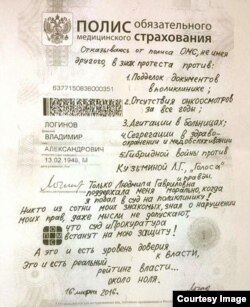 ПОЛИС ОБЯЗАТЕЛЬНОГО
МЕДИЦИНСКОГО СТРАХОВАНИЯ
Отказываюсь от полиса ОМС, не имея
другого в знак протеста против:
1. Подделок документов
в поликлинике;
6377150838000351
2. Отсутствия онкоосмотров
за все годы;
ЛОГИНОВ
ВЛАДИМИР
АЛЕКСАНДРОВИЧ
13.02.1948, М
3. Агитации в больницах;
4. Сегрегации в здраво-
охранении и медобслуживании
5. Гибридной войны против
Кузьминой А.Г., „Голоса"
Только Людмила Гавриловна
поддержала меня морально, когда
я подал в суд на поликлинику!
Никто из сотни моих знакомых, зная о нарушении
моих прав, даже мысли не допускают,
что суд и Прокуратура
встанут на мою защиту!
А это и есть уровень доверия
к власти,
Это и есть реальный
рейтинг власти...
около ноля.
16 марта 2016.
Courtesy Image